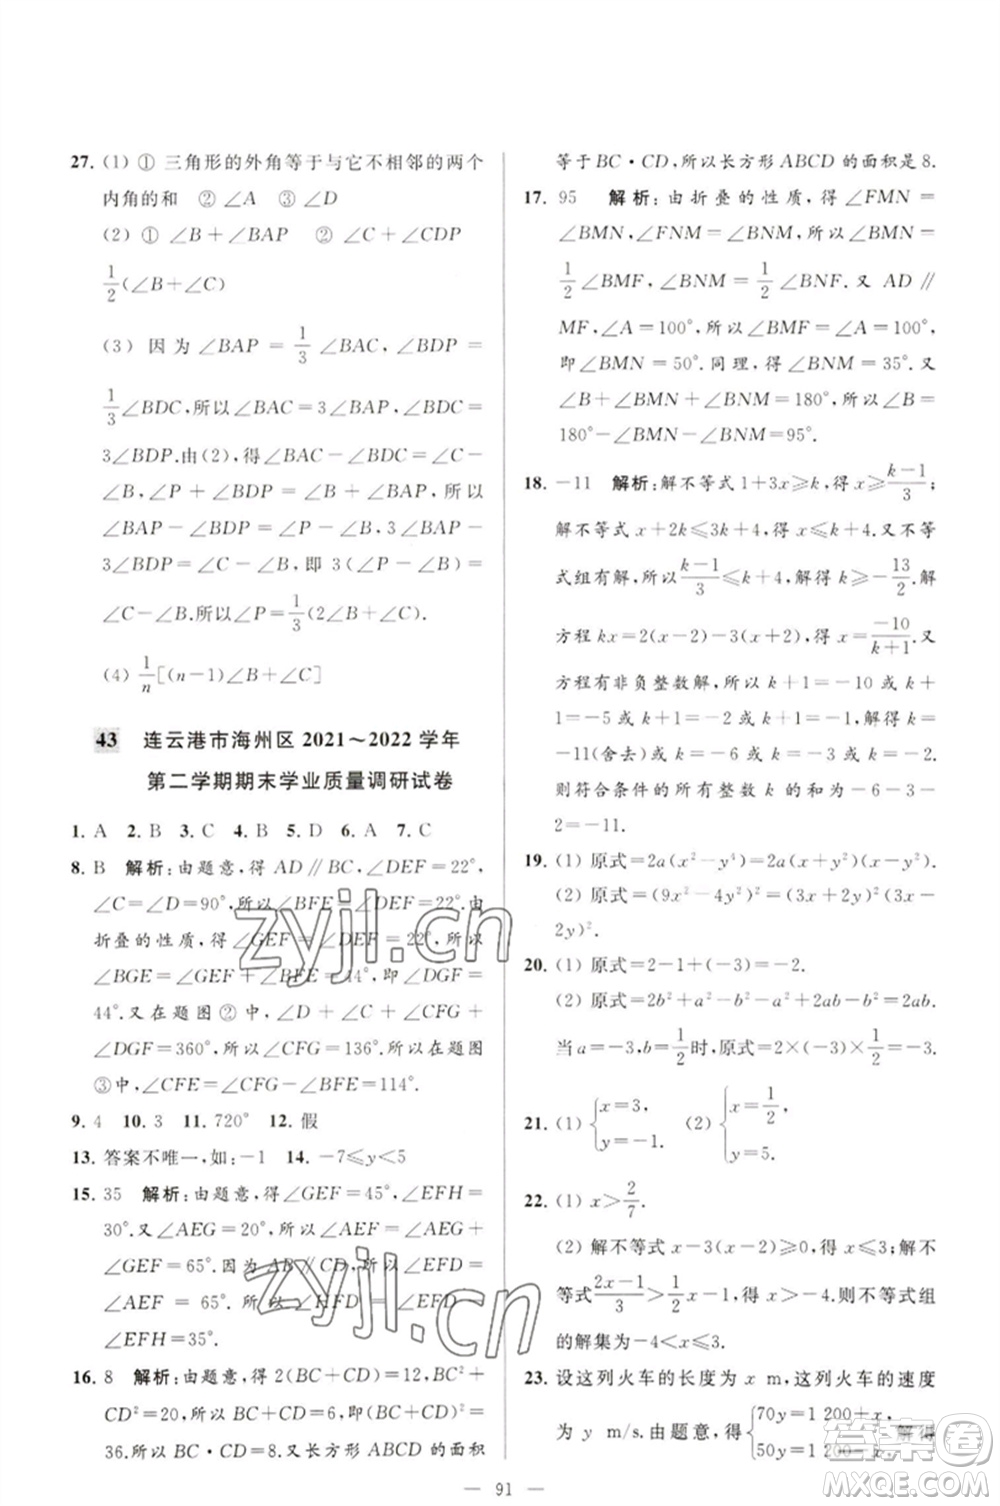 27. (1) ① 三角形的外角等于与它不相邻的两个
内角的和 ② ∠A ③ ∠D
(2) ① ∠B+∠BAP ② ∠C+∠CDP
1/2(∠B+∠C)
(3) 因为∠BAP=1/3∠BAC,∠BDP=
1/3∠BDC,所以∠BAC=3∠BAP,∠BDC=
3∠BDP.由(2),得∠BAC-∠BDC=∠C-
∠B,∠P+∠BDP=∠B+∠BAP,所以
∠BAP-∠BDP=∠P-∠B,3∠BAP-
3∠BDP=∠C-∠B,即3(∠P-∠B)=
∠C-∠B.所以∠P=1/3(2∠B+∠C)
(4) 1/n[(n-1)∠B+∠C]
43 连云港市海州区2021~2022学年
第二学期期末学业质量调研试卷
1. A 2. B 3. C 4. B 5. D 6. A 7. C
8. B 解析:由题意,得AD∥BC,∠DEF=22°,
∠C=∠D=90°,所以∠BFE=∠DEF=22°.由
折叠的性质,得∠GEF=∠DEF=22°,所以
∠BGE=∠DEG=∠GEF+∠DEF=44°,即∠DGF=
44°.又在题图②中,∠D+∠C+∠CFG+
∠DGF=360°,所以∠CFG=136°.所以在题图
③中,∠CFE=∠CFG-∠BFE=114°.
9. 4 10. 3 11. 720° 12. 假
13. 答案不唯一,如:-1 14. -7≤y<5
15. 35 解析:由题意,得∠GEF=45°,∠EFH=
30°.又∠AEG=20°,所以∠AEF=∠AEG+
∠GEF=65°.因为AB∥CD,所以∠EFD=
∠AEF=65°.所以∠HFD=∠EFD-
∠EFH=35°.
16. 8 解析:由题意,得2(BC+CD)=12,BC²+
CD²=20,所以BC+CD=6.所以(BC+CD)²=
36.所以BC·CD=8.又长方形ABCD的面积
等于BC·CD,所以长方形ABCD的面积是8.
17. 95 解析:由折叠的性质,得∠FMN=
∠BMN,∠FNM=∠BNM,所以∠BMN=
1/2∠BMF,∠BNM=1/2∠BNF.又AD∥
MF,∠A=100°,所以∠BMF=∠A=100°,
即∠BMN=50°.同理,得∠BNM=35°.又
∠B+∠BMN+∠BNM=180°,所以∠B=
180°-∠BMN-∠BNM=95°.
18. -11 解析:解不等式1+3x≥k,得x≥(k-1)/3;
解不等式x+2k≤3k+4,得x≤k+4.又不等
式组有解,所以(k-1)/3≤k+4,解得k≥-13/2.解
方程kx=2(x-2)-3(x+2),得x=-10/(k+1).又
方程有非负整数解,所以k+1=-1或k+
1=-2或k+1=-5或k+1=-10,解得
k=-2或k=-3或k=-6或k=
-11(舍去)或k+1=0(舍去),此时方程无解.
则符合条件的所有整数k的和为-6-3-
2=-11.
19. (1) 原式=2a(x²-y⁴)=2a(x+y²)(x-y²).
(2) 原式=(9x²-4y²)²=(3x+2y)²(3x-
2y)².
20. (1) 原式=2-1+(-3)=-2.
(2) 原式=2b²+a²-b²-a²+2ab-b²=2ab.
当a=-3,b=1/2时,原式=2×(-3)×1/2=-3.
21. (1) {x=3, y=-1. (2) {x=1/2, y=5.
22. (1) x>2/7.
(2) 解不等式x-3(x-2)≥0,得x≤3;解不
等式(2x-1)/3>(x-2)/2,得x>-4.则不等式组
的解集为-4<x≤3.
23. 设这列火车的长度为x m,这列火车的速度
为y m/s.由题意,得{70y=1 200+x, 50y=1 200-x, 解得
— 91 —
zyjl.cn
zyjl.cn
答案圈
MXQE.COM